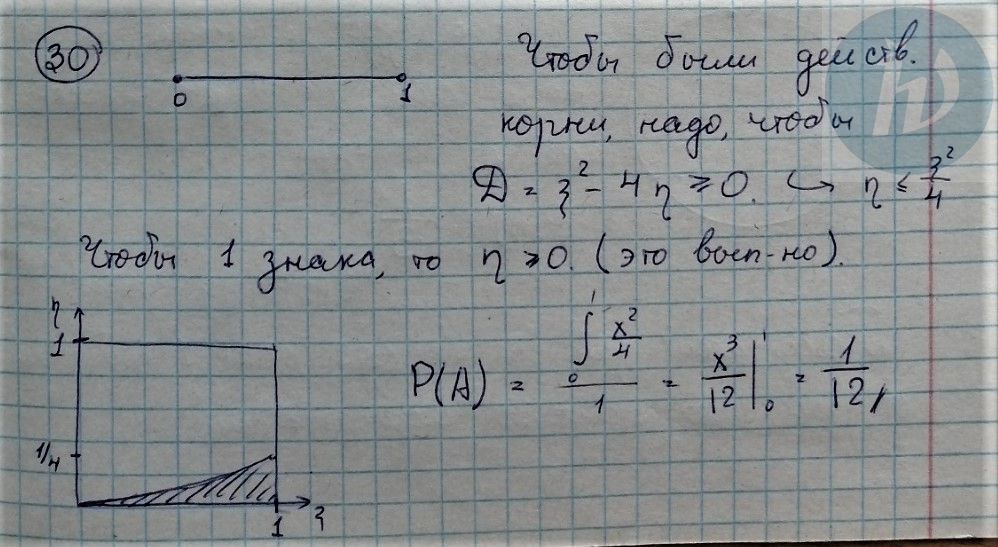 30
0 1
Чтобы были действ.
корни, надо, чтобы
D = ξ² - 4η ≥ 0. ↪ η ≤ ξ²/4
Чтобы 1 знака, то η > 0. (это вып-но).
η
1
1/4
1 ξ
P(A) = ∫₀¹ x²/4 / 1 = x³/12 |₀¹ = 1/12,